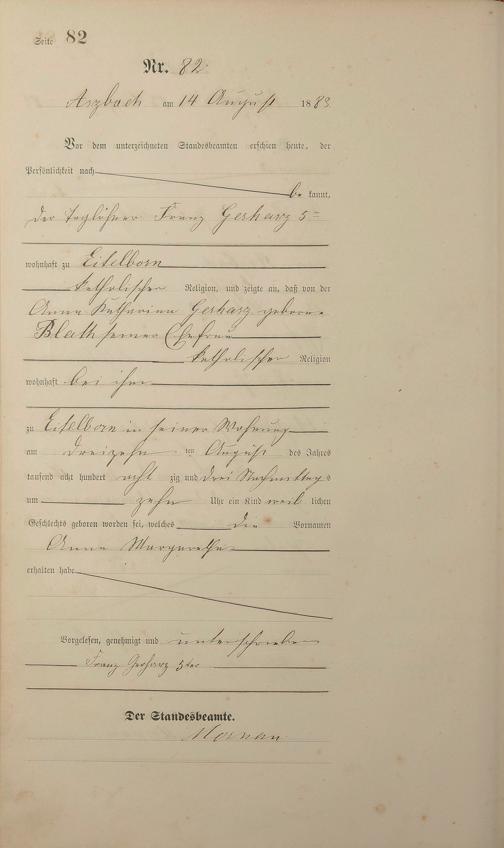 Seite 82
Nr. 82
Arzbach am 14 August 1883
Vor dem unterzeichneten Standesbeamten erschien heute, der
Persönlichkeit nach
be kannt,
der Taglöhner Franz Gerharz 5
wohnhaft zu Eitelborn
katholischer Religion, und zeigte an, daß von der
Anna Katharina Gerharz geborene
Blath seiner Ehefrau
katholischer Religion
wohnhaft bei ihm
zu Eitelborn in seiner Wohnung
am dreizehn ten August des Jahres
tausend acht hundert acht zig und drei Nachmittags
um zehn Uhr ein Kind weib lichen
Geschlechts geboren worden sei, welches die Vornamen
Anna Margaretha
erhalten habe
Vorgelesen, genehmigt und unterschrieben
Franz Gerharz 5ter
Der Standesbeamte.